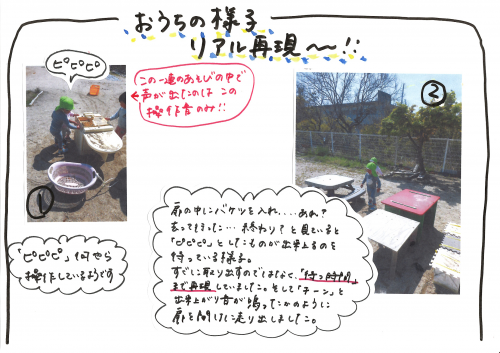 おうちの様子
リアル再現〜!!
ピピピピ
この一連のあそびの中で
声が出たのは この
操作音のみ!!
①
②
「ピピピピ」何やら
操作しているようです
扉の中にバケツを入れ....あれ?
去ってきった...終わり?と見ていると
「ピピピ」としているのが出来上るのを
待っている様子。
すぐに取り出すのではなく、「待つ時間」
まで再現していました。そして「チーン」と
出来上がり音が鳴ったかのように
扉を開けに走り出しました。